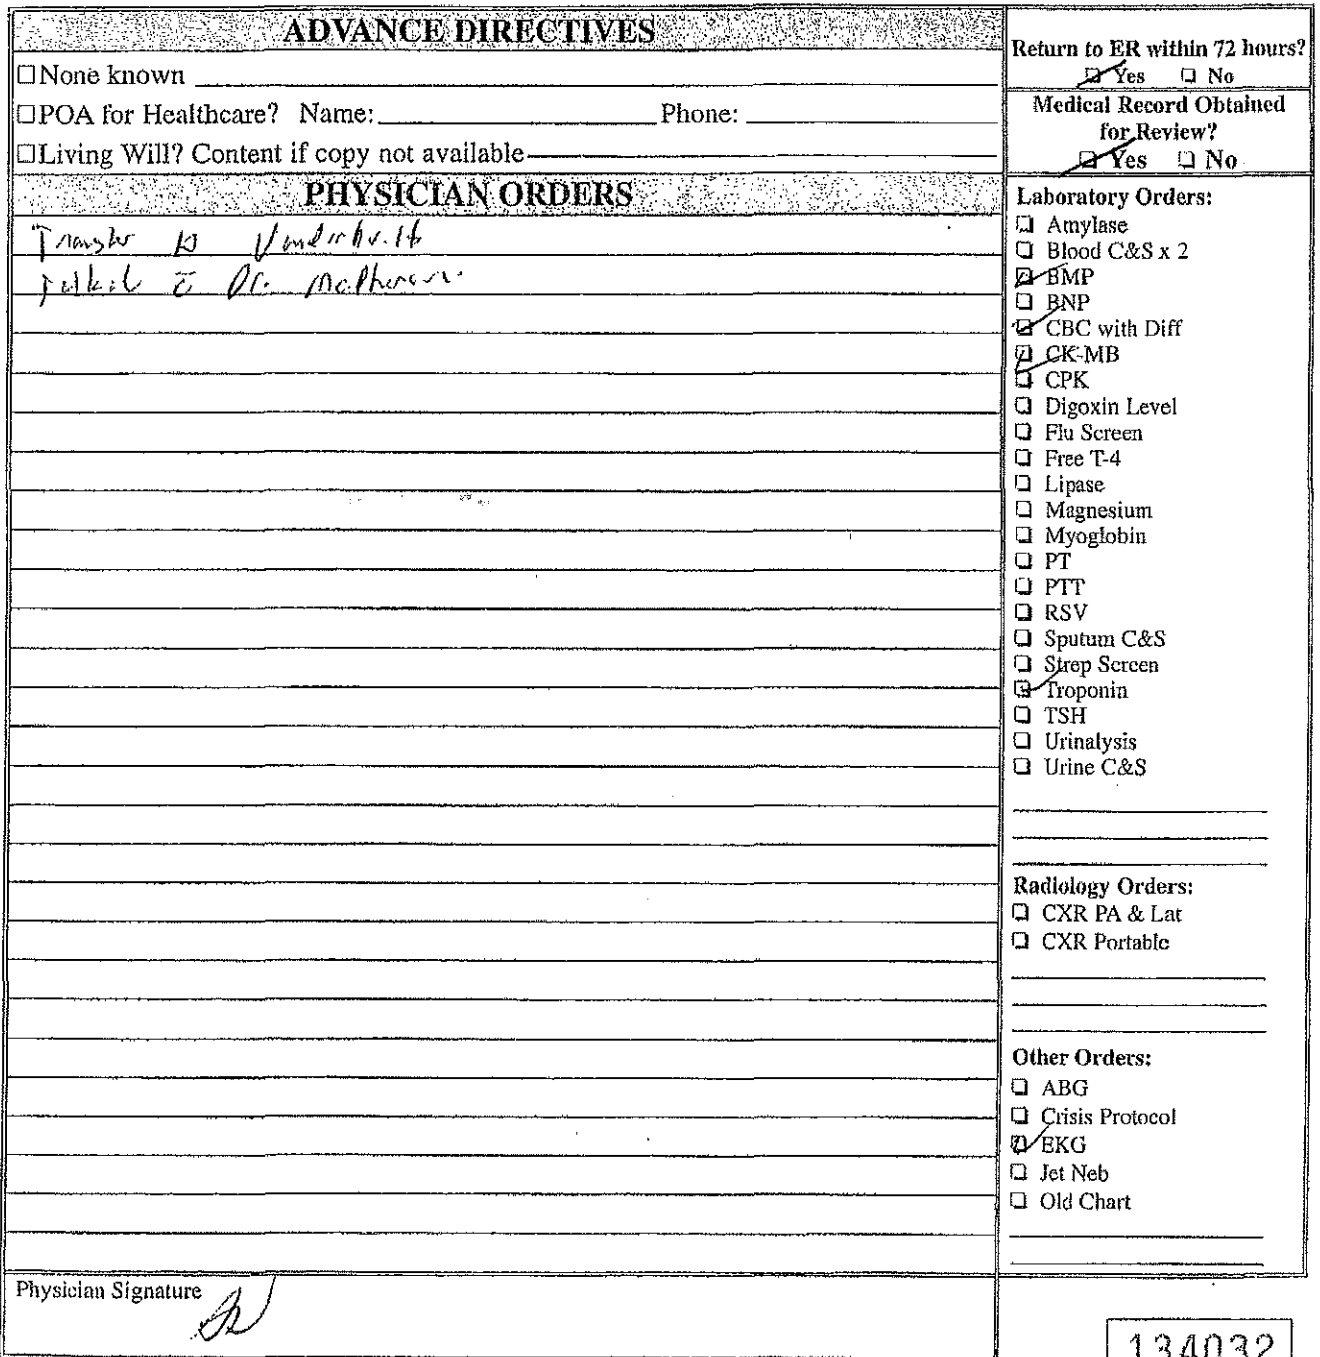 ADVANCE DIRECTIVES
☐None known
☐POA for Healthcare? Name: Phone:
☐Living Will? Content if copy not available
PHYSICIAN ORDERS
Transfer to Vanderbilt
Talked c̄ Dr.
Physician Signature
Return to ER within 72 hours?
☑ Yes ☐ No
Medical Record Obtained
for Review?
☑ Yes ☐ No
Laboratory Orders:
☐ Amylase
☐ Blood C&S x 2
☑ BMP
☐ BNP
☑ CBC with Diff
☑ CK-MB
☐ CPK
☐ Digoxin Level
☐ Flu Screen
☐ Free T-4
☐ Lipase
☐ Magnesium
☐ Myoglobin
☐ PT
☐ PTT
☐ RSV
☐ Sputum C&S
☐ Strep Screen
☑ Troponin
☐ TSH
☐ Urinalysis
☐ Urine C&S
Radiology Orders:
☐ CXR PA & Lat
☐ CXR Portable
Other Orders:
☐ ABG
☐ Crisis Protocol
☑ EKG
☐ Jet Neb
☐ Old Chart
134032